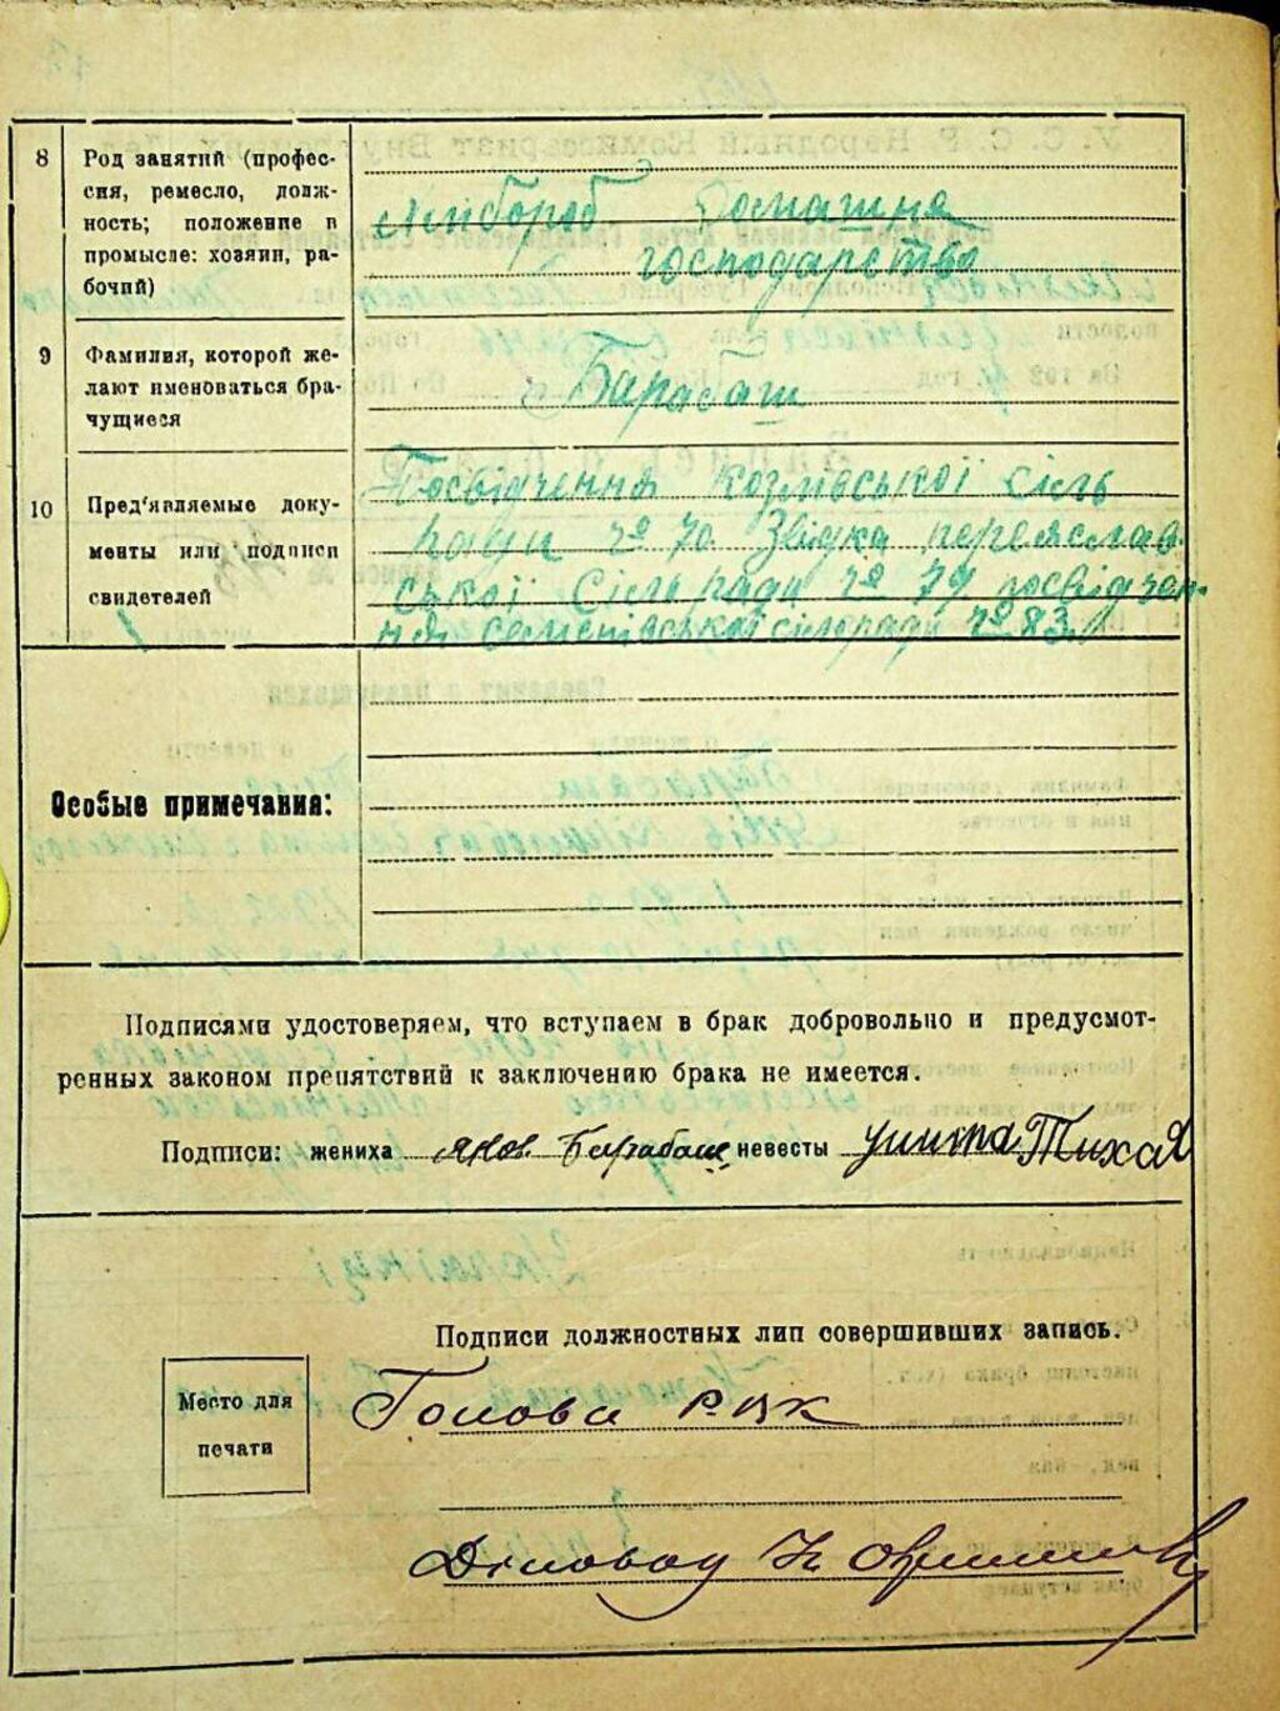 8
Род занятий (профес-
сия, ремесло, долж-
ность; положение в
промысле: хозяин, ра-
бочий)
Хлібороб Домашнє
господарство
9
Фамилия, которой же-
лают именоваться бра-
чущиеся
Барабаш
10
Пред'являемые доку-
менты или подписи
свидетелей
Посвідчення Козлівської сіль
ради № 70. Звідка переяслав-
ської Сільради № 79 посвідчен-
ня семенівської сільради № 83.
Особые примечания:
Подписями удостоверяем, что вступаем в брак добровольно и предусмот-
ренных законом препятствий к заключению брака не имеется.
Подписи: жениха Яков Барабаш невесты Тихая
Подписи должностных лип совершивших запись.
Место для
печати
Голова РВК
Діловод